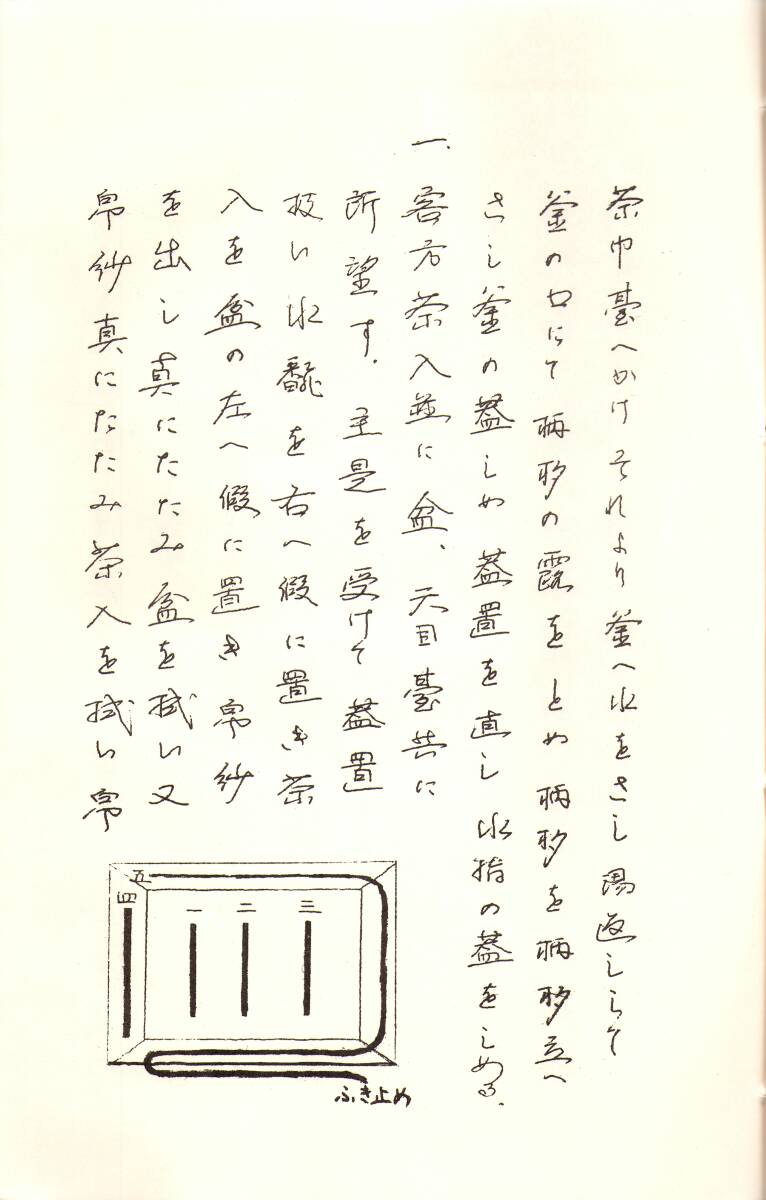 茶巾臺へかけそれより釜へ水をさし湯返しして
釜の口にて柄杓の露をとめ柄杓を柄杓立へ
さし釜の蓋しめ蓋置を直し水指の蓋をしめる、
一、客方茶入並に盆、天目臺共に
所望す。主是を受けて蓋置
扱い水飜を右へ假に置き茶
入を盆の左へ假に置き帛紗
を出し真にたたみ盆を拭い又
帛紗真にたたみ茶入を拭い帛
五
四
一
二
三
ふき止め